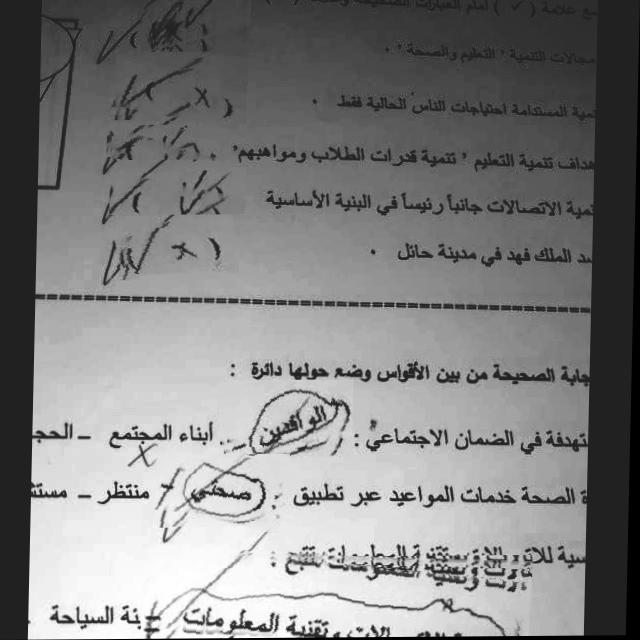 ـع علامة ( ✓ ) أمام العبارات الصحيحة
مجالات التنمية " التعليم والصحة " .
ـمية المستدامة احتياجات الناس الحالية فقط . ( X )
هداف تنمية التعليم " تنمية قدرات الطلاب ومواهبهم" .
ـمية الاتصالات جانباً رئيساً في البنية الأساسية
ـد الملك فهد في مدينة حائل . ( x )
جابة الصحيحة من بين الأقواس وضع حولها دائرة :
ـتهدفة في الضمان الاجتماعي : الوافدين .. أبناء المجتمع – الحجـ
ة الصحة خدمات المواعيد عبر تطبيق : صحتي – منتظر – مستشـ
ـسية للاتـ
ـالات وتقنية المعلومات – ـئة السياحة .